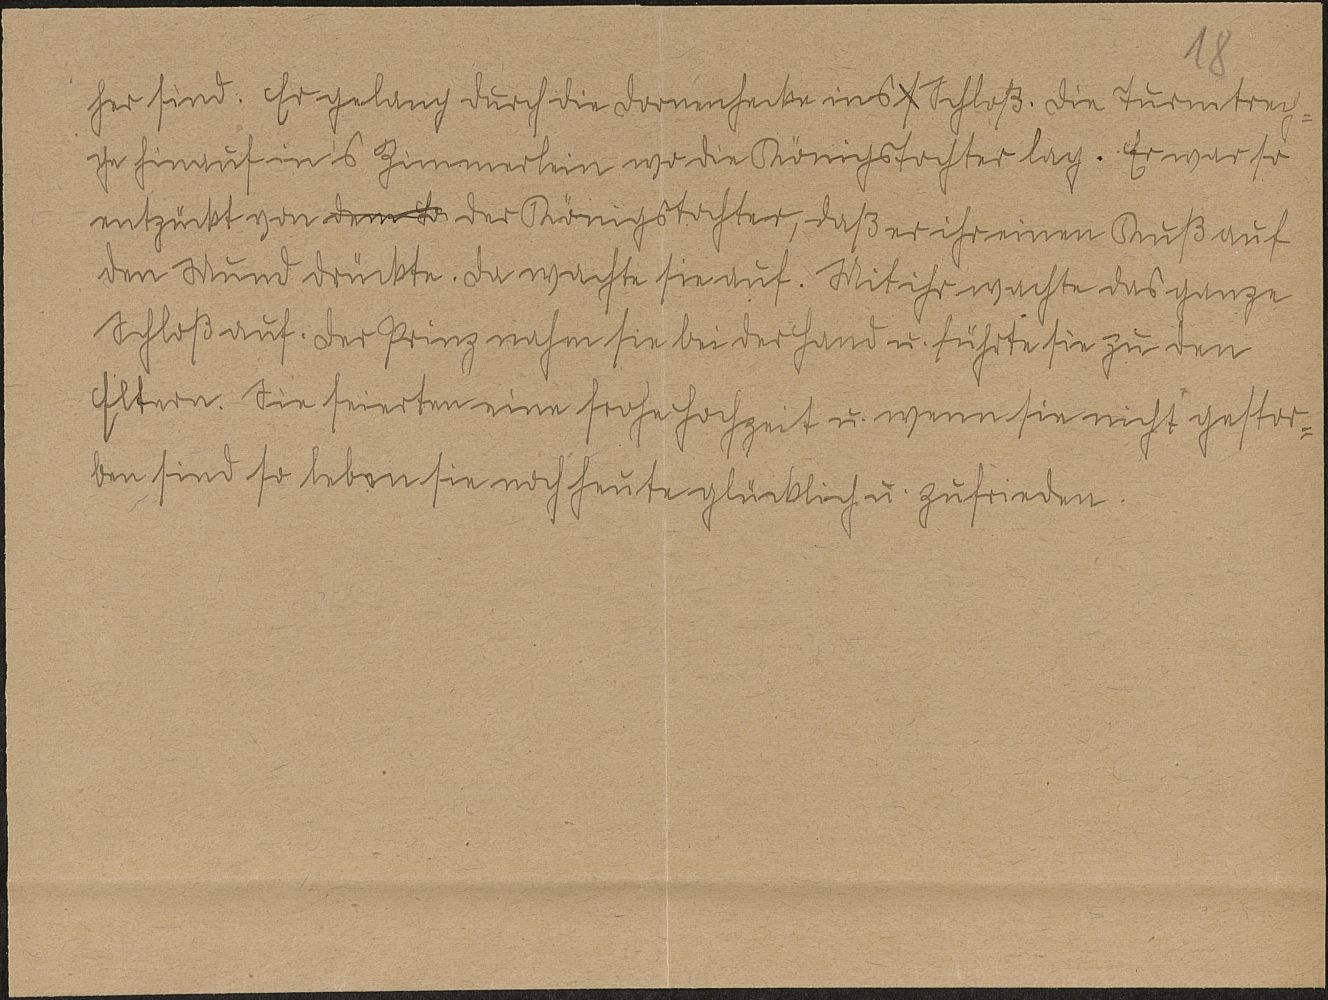 18
her sind. Er gelang durch die Dornenhecke ins Schloß. Die Turmtrep=
pe hinauf in's Zimmerlein wo die Königstochter lag. Er war so
entzückt von dem so der Königstochter, daß er ihr einen Kuß auf
den Mund drückte. Da wachte sie auf. Mit ihr wachte das ganze
Schloß auf. Der Prinz nahm sie bei der Hand u. führte sie zu den
Eltern. Sie feierten eine frohe Hochzeit u. wenn sie nicht gestor=
ben sind so leben sie noch heute glücklich u. zufrieden.